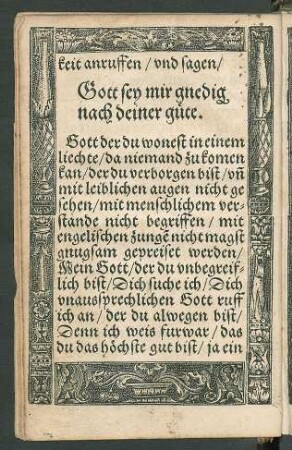 keit anruffen / vnd sagen /
Gott sey mir gnedig
nach deiner güte.
Gott der du wonest in einem
liechte / da niemand zu komen
kan / der du verborgen bist / vn̄
mit leiblichen augen nicht ge
sehen / mit menschlichem ver-
stande nicht begriffen / mit
engelischen zungē nicht magst
gnugsam gepreiset werden /
Mein Gott / der du vnbegreif-
lich bist / Dich suche ich / Dich
vnaussprechlichen Gott ruff
ich an / der du alwegen bist /
Denn ich weis furwar / das
du das höchste gut bist / ja ein